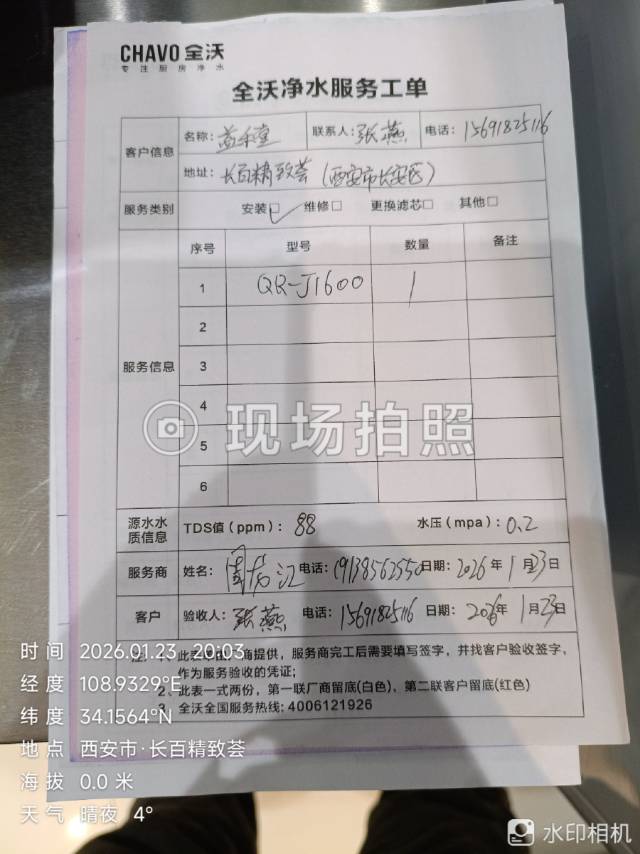 CHAVO 全沃
专注厨房净水
全沃净水服务工单
客户信息
名称：益禾堂 联系人：张燕 电话：15691825116
地址：长百精致荟（西安市长安区）
服务类别 安装☑ 维修□ 更换滤芯□ 其他□
服务信息
序号 型号 数量 备注
1 QR-J1600 1
2
3
4
5
6
现场拍照
源水水质信息 TDS值（ppm）：88 水压（mpa）：0.2
服务商 姓名：周龙江 电话：19138562550 日期：2026年1月23日
客户 验收人：张燕 电话：15691825116 日期：2026年1月23日
注：1、此表单由厂商提供，服务商完工后需要填写签字，并找客户验收签字，
作为服务验收的凭证；
2、此表一式两份，第一联厂商留底(白色)，第二联客户留底(红色)
3、全沃全国服务热线：4006121926
时间 2026.01.23 20:03
经度 108.9329°E
纬度 34.1564°N
地点 西安市·长百精致荟
海拔 0.0 米
天气 晴夜 4°
水印相机